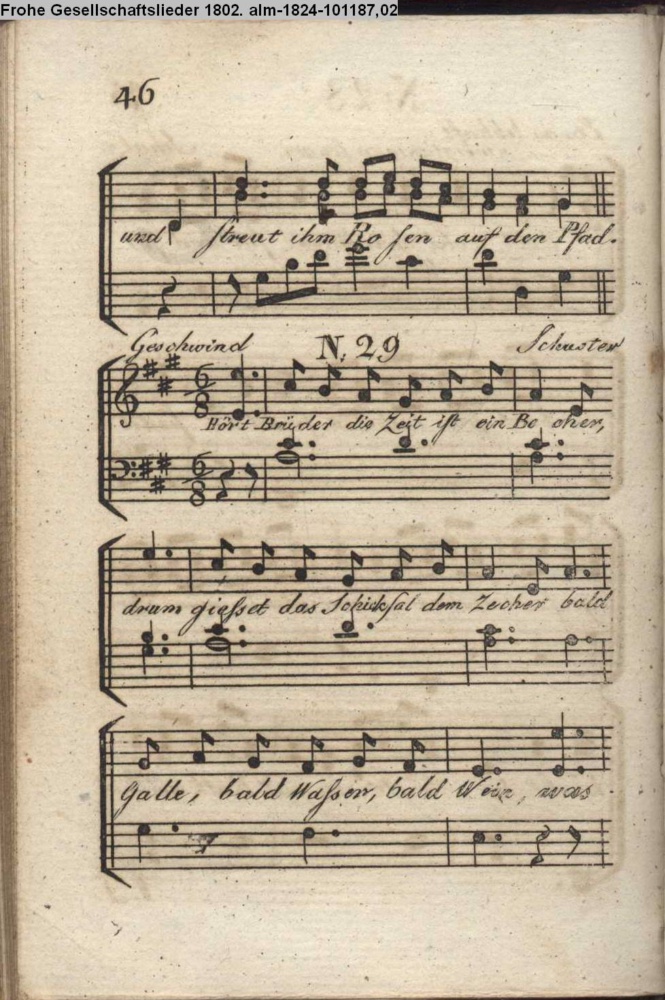 Frohe Gesellschaftslieder 1802. alm-1824-101187,02
46
und streut ihm Ro sen auf den Pfad.
Geschwind N: 29 Schuster
6
8
Hört Brüder die Zeit ist ein Be cher,
6
8
drum giesset das Schicksal dem Zecher bald
Galle, bald Wasser, bald Wein, was